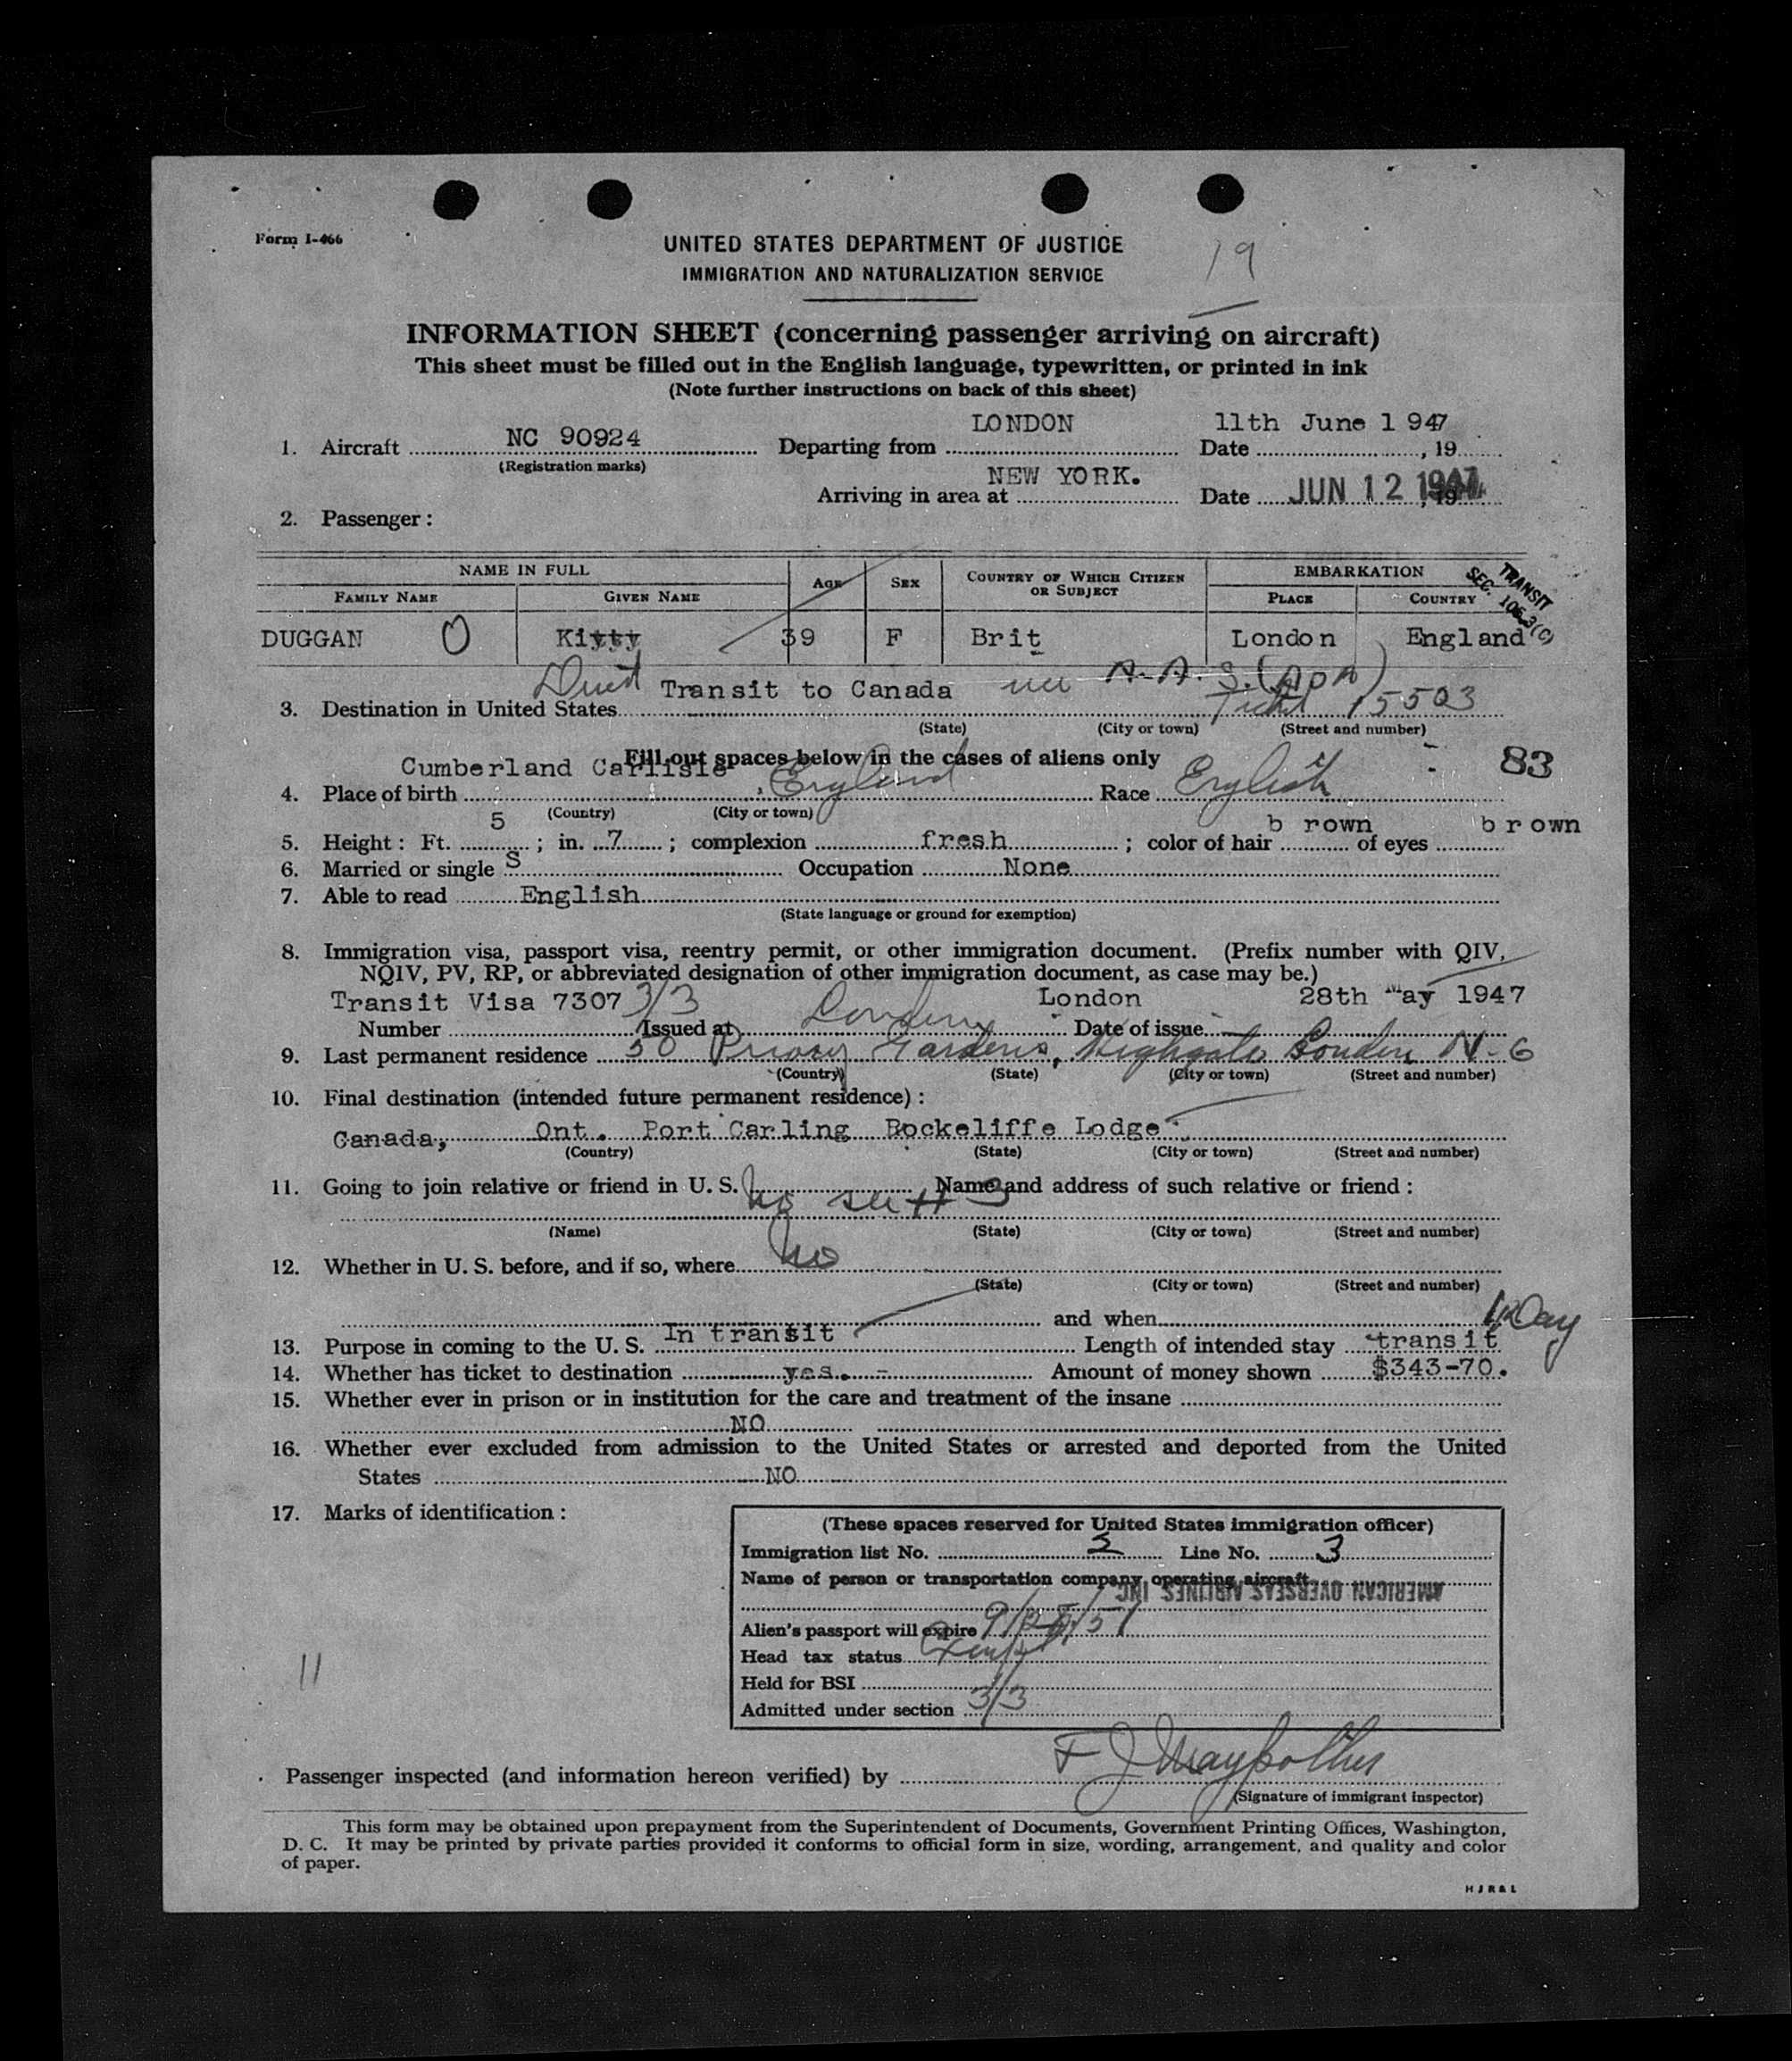 Form I-466
UNITED STATES DEPARTMENT OF JUSTICE
IMMIGRATION AND NATURALIZATION SERVICE
19
INFORMATION SHEET (concerning passenger arriving on aircraft)
This sheet must be filled out in the English language, typewritten, or printed in ink
(Note further instructions on back of this sheet)
1. Aircraft NC 90924 Departing from LONDON Date 11th June 1 947, 19
(Registration marks)
Arriving in area at NEW YORK. Date JUN 12 1947, 19
2. Passenger:
NAME IN FULL AGE SEX COUNTRY OF WHICH CITIZEN OR SUBJECT EMBARKATION
FAMILY NAME GIVEN NAME PLACE COUNTRY
TRANSIT
SEC. 106.3(C)
DUGGAN O Kitty 39 F Brit London England
3. Destination in United States Transit to Canada A.A.S. (AOA) Ticket 15503
(State) (City or town) (Street and number)
Fill out spaces below in the cases of aliens only
83
4. Place of birth Cumberland Carlisle, England Race English
(Country) (City or town)
5. Height: Ft. 5; in. 7; complexion fresh; color of hair b rown of eyes brown
6. Married or single S Occupation None
7. Able to read English
(State language or ground for exemption)
8. Immigration visa, passport visa, reentry permit, or other immigration document. (Prefix number with QIV,
NQIV, PV, RP, or abbreviated designation of other immigration document, as case may be.)
Transit Visa 7307 3/3 London London 28th May 1947
Number Issued at Date of issue
9. Last permanent residence 50 Priory Gardens, Highgate London N-6
(Country) (State) (City or town) (Street and number)
10. Final destination (intended future permanent residence):
Canada, Ont. Port Carling Rockeliffe Lodge
(Country) (State) (City or town) (Street and number)
11. Going to join relative or friend in U. S. Name and address of such relative or friend:
no see # 3
(Name) (State) (City or town) (Street and number)
12. Whether in U. S. before, and if so, where no
(State) (City or town) (Street and number)
and when
13. Purpose in coming to the U. S. In transit Length of intended stay transit 1 Day
14. Whether has ticket to destination yes. - Amount of money shown $343-70.
15. Whether ever in prison or in institution for the care and treatment of the insane
NO
16. Whether ever excluded from admission to the United States or arrested and deported from the United
States NO
17. Marks of identification:
(These spaces reserved for United States immigration officer)
Immigration list No. 5 Line No. 3
Name of person or transportation company operating aircraft
AMERICAN OVERSEAS AIRLINES INC
Alien's passport will expire
Head tax status
Held for BSI
Admitted under section 3/3
11
Passenger inspected (and information hereon verified) by
(Signature of immigrant inspector)
This form may be obtained upon prepayment from the Superintendent of Documents, Government Printing Offices, Washington,
D. C. It may be printed by private parties provided it conforms to official form in size, wording, arrangement, and quality and color
of paper.
H J R & L